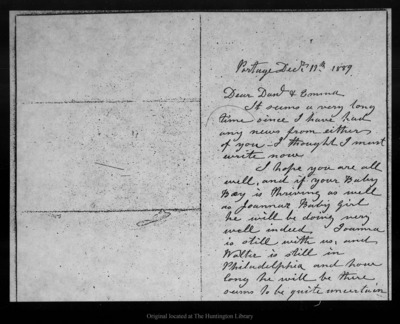 Portage Dec. 11th 1889
Dear Dan'l & Emma
It seems a very long
time since I have had
any news from either
of you. I thought I must
write now
I hope you are all
well, and if your Baby
Boy is thriving as well
as Joannas Baby Girl
he will be doing very
well indeed. Joanna
is still with us, and
Walter is still in
Philadelphia and how
long he will be there
seems to be quite uncertain
Original located at The Huntington Library